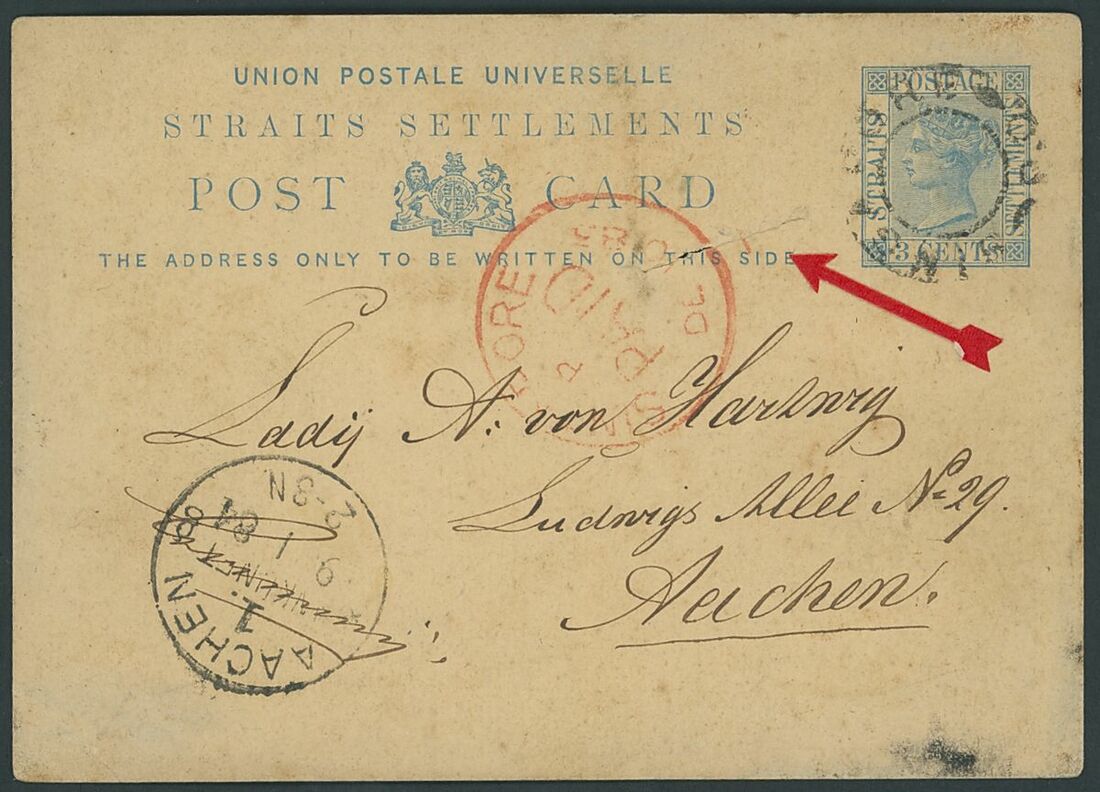 UNION POSTALE UNIVERSELLE
STRAITS SETTLEMENTS
POST CARD
THE ADDRESS ONLY TO BE WRITTEN ON THIS SIDE
POSTAGE
STRAITS
SETTLEMENTS
3 CENTS
PAID
Lady A: von Hartwig
Ludwigs Allee No 29.
Aachen.
AACHEN
1.
9 1 84
2-3N